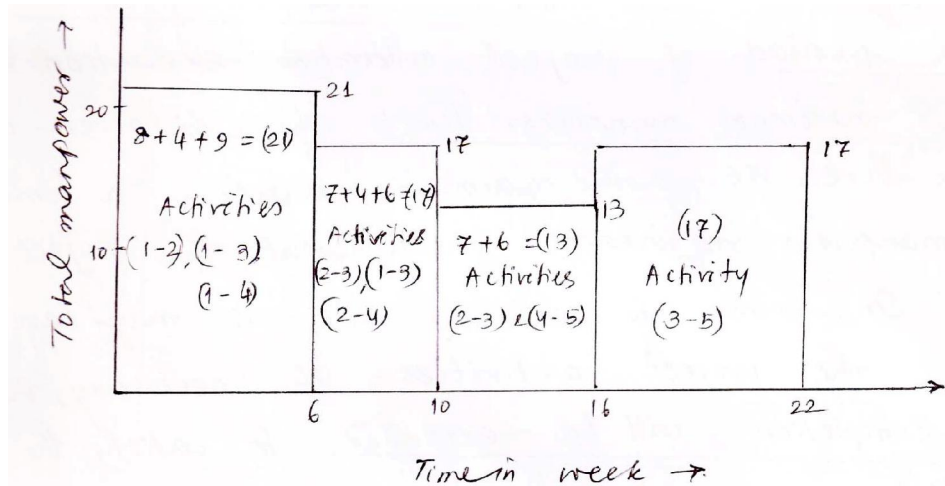 Total manpower →
20
10
21
8+4+9 = (21)
Activities
(1-2), (1-3)
(1-4)
17
7+4+6=(17)
Activities
(2-3), (1-3)
(2-4)
13
7+6 = (13)
Activities
(2-3) & (4-5)
17
(17)
Activity
(3-5)
6
10
16
22
Time in week →